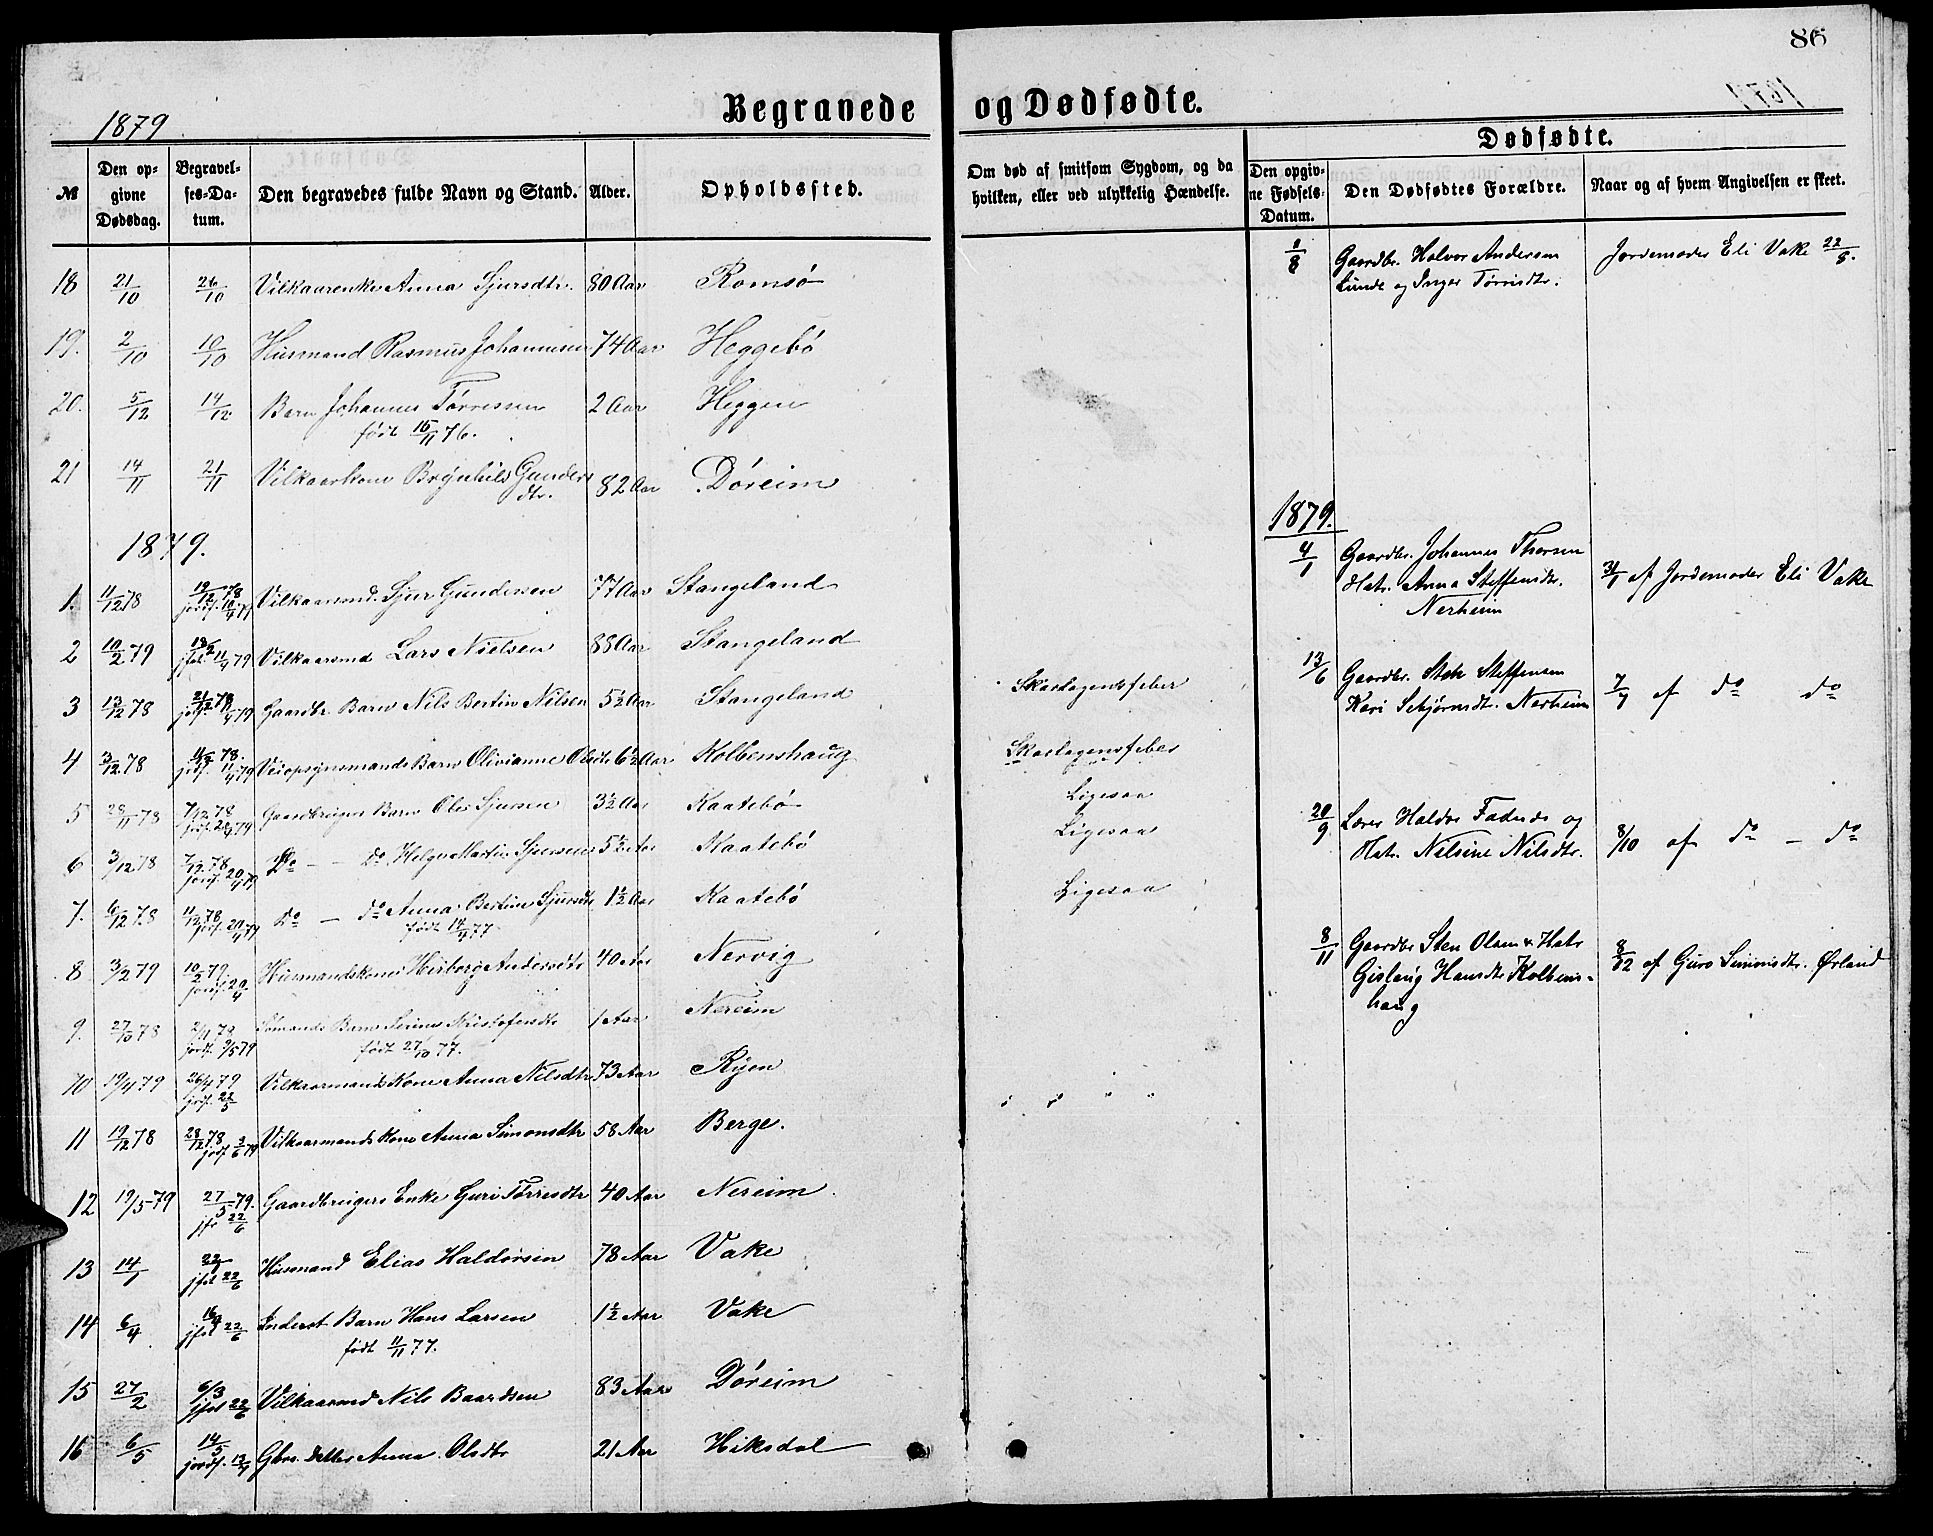 86
1879
Begravede og Dødfødte.
Dødfødte.
№ Den opgivne Dødsdag. Begravelses-Datum. Den begravedes fulde Navn og Stand. Alder. Opholdssted. Om død af smitsom Sygdom, og da hvilken, eller ved ulykkelig Hændelse. Den opgivne Fødsels-Datum. Den Dødfødtes Forældre. Naar og af hvem Angivelsen er skeet.
18 21/10 26/10 Vilkaarenke Anna Sjursdtr. 80 Aar Romsø
19. 2/10 10/10 Husmand Rasmus Johannesen 74 Aar Heggebø
20. 5/12 14/12 Barn Johannes Tørressen 2 Aar Heggen
født 15/11 76.
21 14/11 21/11 Vilkaarkone Brynhild Gunders 82 Aar Døreim
dtr.
1879.
1. 11/12 78 19/12 78 Vilkaarsmd. Sjur Gundersen 77 Aar Stangeland
2 10/2 79 jfst 11/4 79 Vilkaarsmd Lars Nielsen 88 Aar Stangeland
3 13/12 78 21/12 78 Gaardbr. Barn Nils Bertin Nilsen 5½ Aar Stangeland Skarlagensfeber
4 3/12 78 78. Veiopsynsmands Barn Olivianne Olsdtr 6½ Aar Kolbenshaug Skarlagensfeber
5 28/11 78 7/12 78 Gaardbrugers Barn Ole Sjursen 3½ Aar Kaatebø Ligesaa
6 3/12 78 7/12 78 jordf. 20/4 79 Do — do Helge Martin Sjursen 5½ Aar Kaatebø Ligesaa
7. 6/12 78 11/12 78 jordf. 20/4 79 do — do Anna Bertine Sjursdtr 1½ Aar Kaatebø Ligesaa
født 14/4 77
8 3/2 79 10/2 79 jordf. 20/4 Husmandskone Herborg Andersdtr 40 Aar Nervig
9. 27/10 78 2/11 78 jordf. 3/5 79 Sømands Barn Serine Kristofersdtr 1 Aar Nereim
født 27/10 77.
10 19/4 79 26/4 79 jordf. 22/5 Vilkaarmands Kone Anna Nilsdtr 73 Aar Ryen
11 19/12 78 28/12 78 jordf 2/6 79 Vilkaarmands Kone Anna Simonsdtr 58 Aar Berge.
12 19/5 79 27/5 79. jfst 22/6 Gaardbrugers Enke Guri Tørresdtr 40 Aar Nereim
13 14/1 22/1 jfst 22/6 Husmand Elias Haldorsen 78 Aar Vake
14 6/4 16/4 jfst 22/6 Inderst Barn Hans Larsen 1½ Aar Vake
født 11/11 77.
15 27/2 6/3 jfst 22/6 Vilkaarsmd Nils Baardsen 83 Aar Døreim
16 6/5 14/5 jordf. 13/7 Gbrs. Datter Anna Olsdtr 21 Aar Hiksdal
1/8 Gaardbr. Halvor Andersen Jordemoder Eli Vake 22/8.
Lunde og Inger Tørrisdtr.
1879.
4/1 Gaardbr. Johannes Thorsen
Hstr. Anna Steffensdtr. 31/1 af Jordemoder Eli Vake
Nerheim
13/6 Gaardbr. Sten Steffensen
Kari Sebjørnsdtr. Nerheim 7/7 af do do
20/9 Lærer Haldor Fadnes og
Hstr. Nelsine Nilsdtr. 8/10 af do — do
8/11 Gaardbr Sten Olsen & Hstr
Gislaug Hansdtr Kolbens- 8/12 af Guro Simonsdtr. Ørland
haug